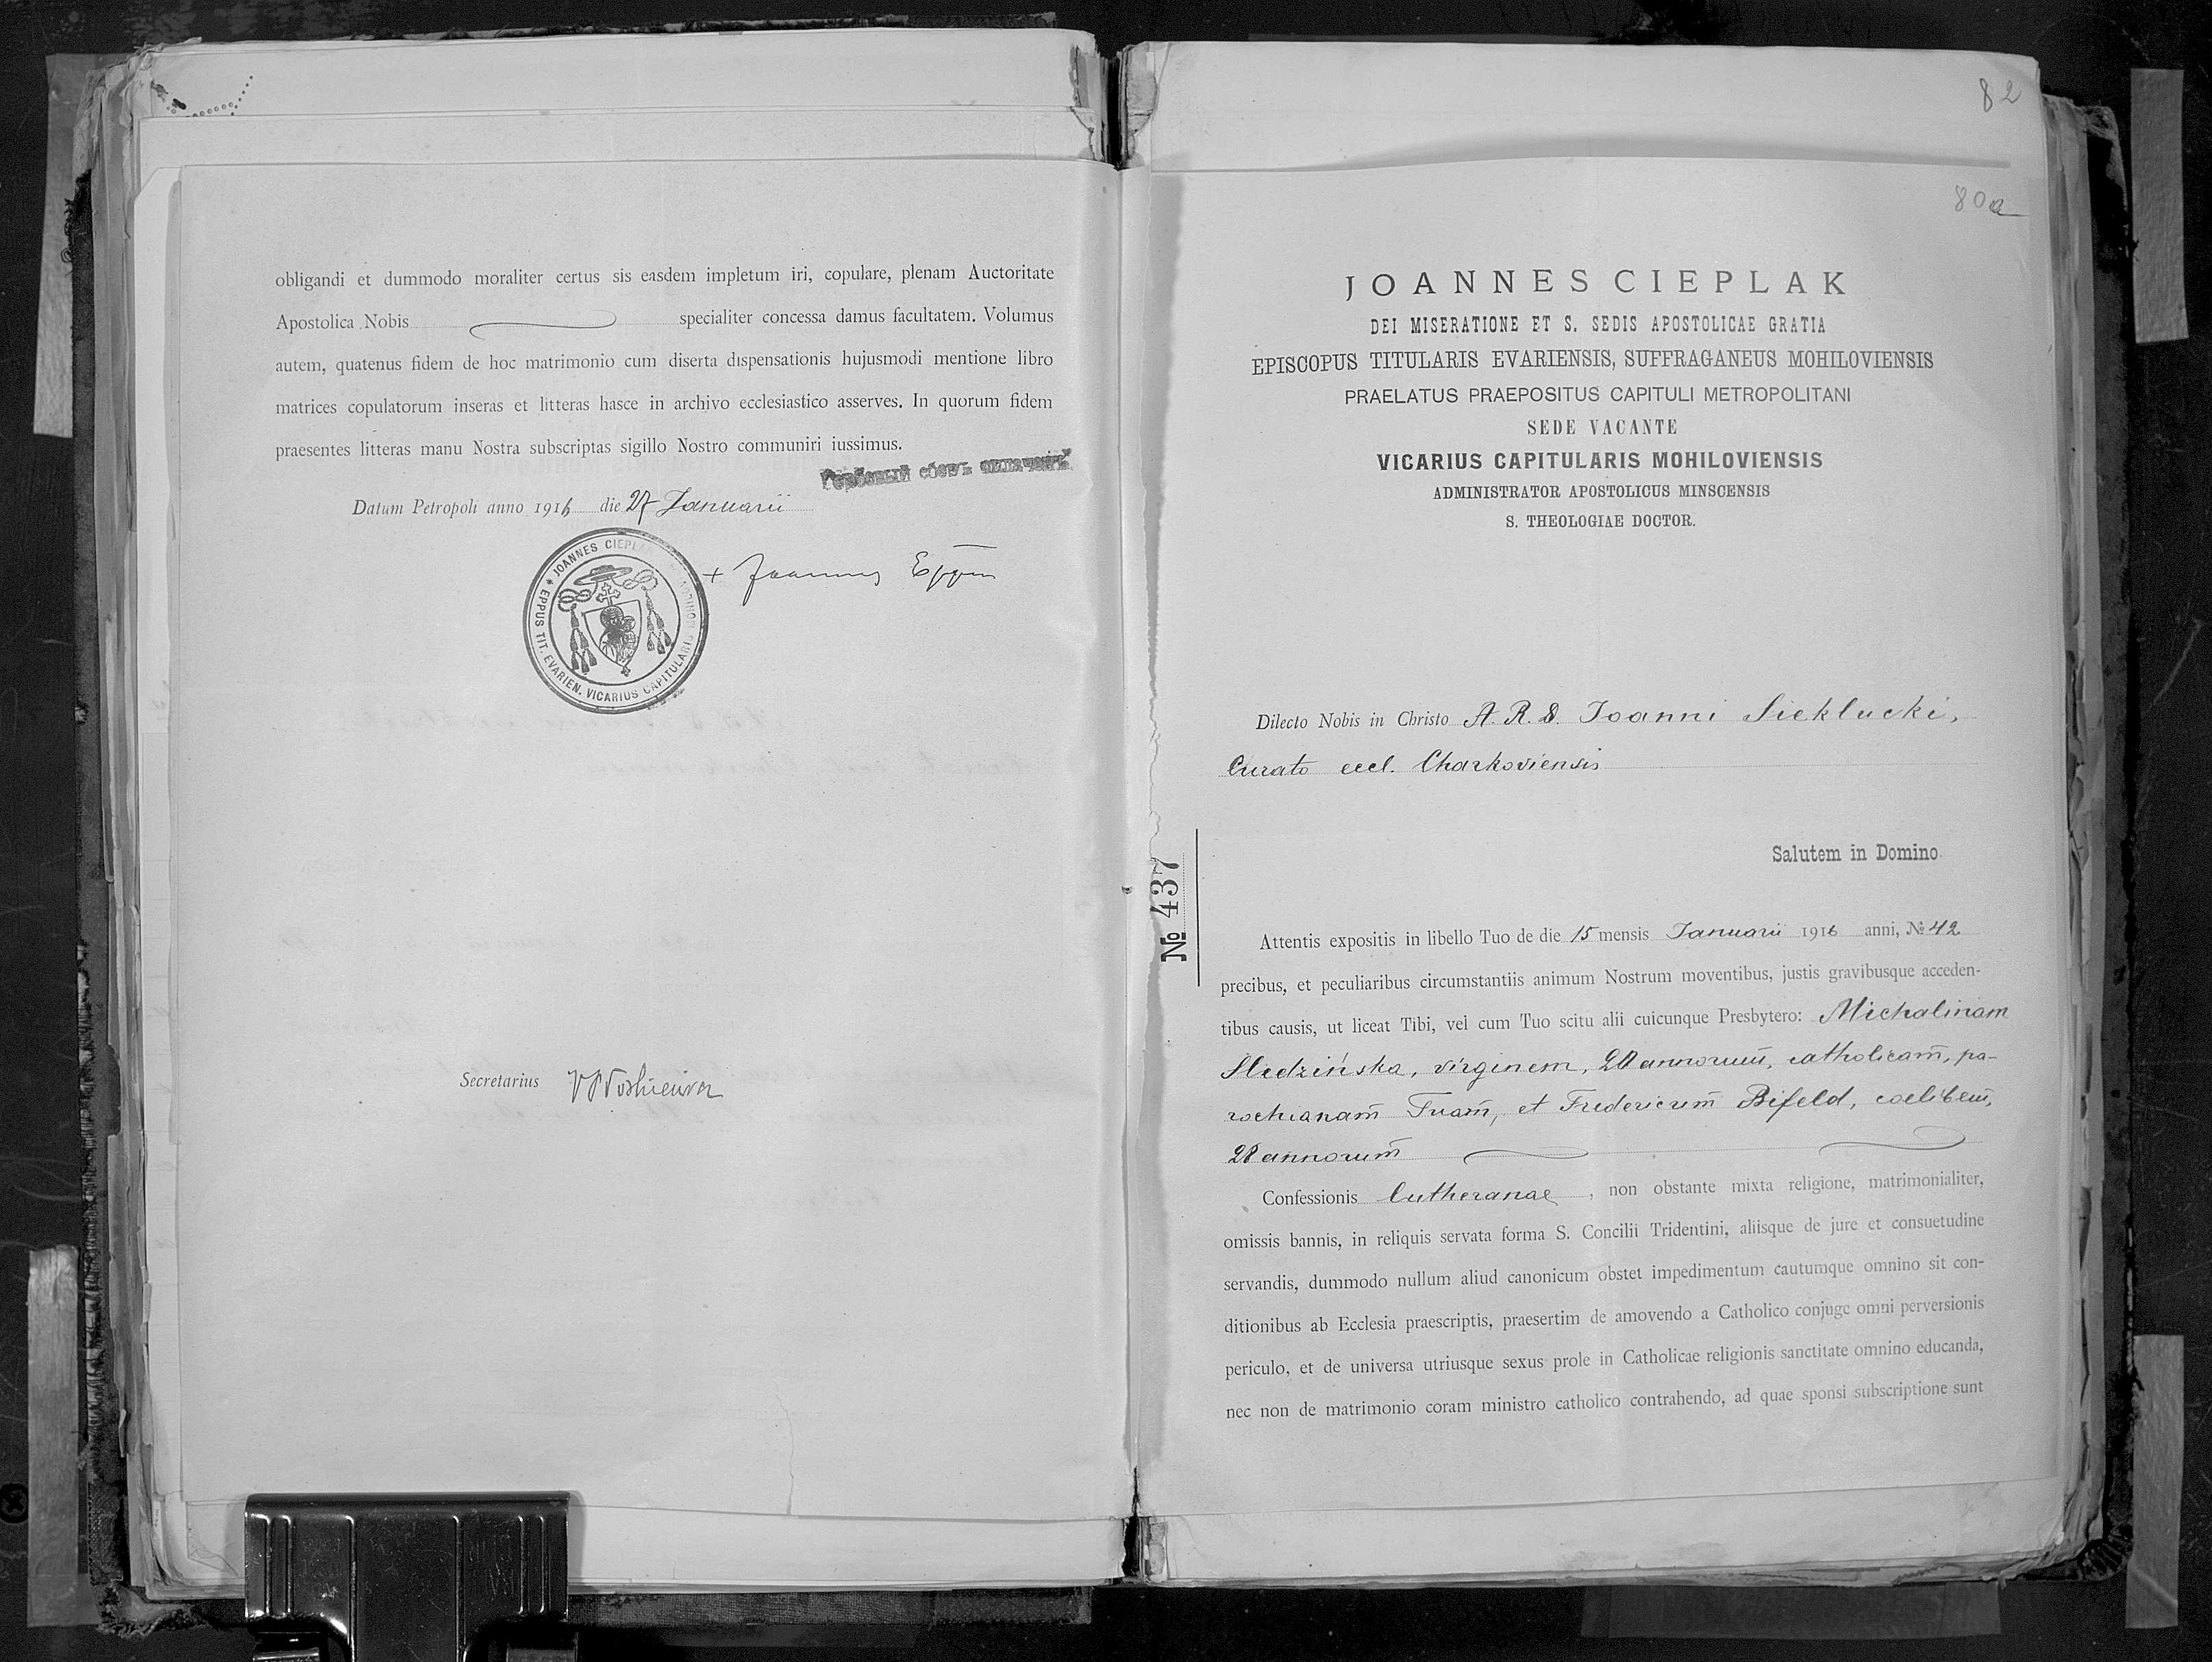 obligandi et dummodo moraliter certus sis easdem impletum iri, copulare, plenam Auctoritate
Apostolica Nobis specialiter concessa damus facultatem. Volumus
autem, quatenus fidem de hoc matrimonio cum diserta dispensationis hujusmodi mentione libro
matrices copulatorum inseras et litteras hasce in archivo ecclesiastico asserves. In quorum fidem
praesentes litteras manu Nostra subscriptas sigillo Nostro communiri iussimus.
Гербовый сборъ оплаченъ
Datum Petropoli anno 1916 die 27 Januarii
JOANNES CIEPLAK
EPPUS TIT. EVARIEN. VICARIUS CAPITULARIS
+ Joannes Eppus
Secretarius
82
80a
JOANNES CIEPLAK
DEI MISERATIONE ET S. SEDIS APOSTOLICAE GRATIA
EPISCOPUS TITULARIS EVARIENSIS, SUFFRAGANEUS MOHILOVIENSIS
PRAELATUS PRAEPOSITUS CAPITULI METROPOLITANI
SEDE VACANTE
VICARIUS CAPITULARIS MOHILOVIENSIS
ADMINISTRATOR APOSTOLICUS MINSCENSIS
S. THEOLOGIAE DOCTOR.
Dilecto Nobis in Christo A. R. D. Joanni Sieklucki,
Curato eccl. Charkoviensis
Salutem in Domino.
№ 437
Attentis expositis in libello Tuo de die 15 mensis Januarii 1916 anni, № 42
precibus, et peculiaribus circumstantiis animum Nostrum moventibus, justis gravibusque acceden-
tibus causis, ut liceat Tibi, vel cum Tuo scitu alii cuicunque Presbytero: Michalinam
Śledzińska, virginem, annorum̄, catholicam̄, pa-
rochianam̄ Tuam̄, et Fredericum̄ Bifeld, coelibem̄,
28 annorum̄
Confessionis lutheranae, non obstante mixta religione, matrimonialiter,
omissis bannis, in reliquis servata forma S. Concilii Tridentini, aliisque de jure et consuetudine
servandis, dummodo nullum aliud canonicum obstet impedimentum cautumque omnino sit con-
ditionibus ab Ecclesia praescriptis, praesertim de amovendo a Catholico conjuge omni perversionis
periculo, et de universa utriusque sexus prole in Catholicae religionis sanctitate omnino educanda,
nec non de matrimonio coram ministro catholico contrahendo, ad quae sponsi subscriptione sunt